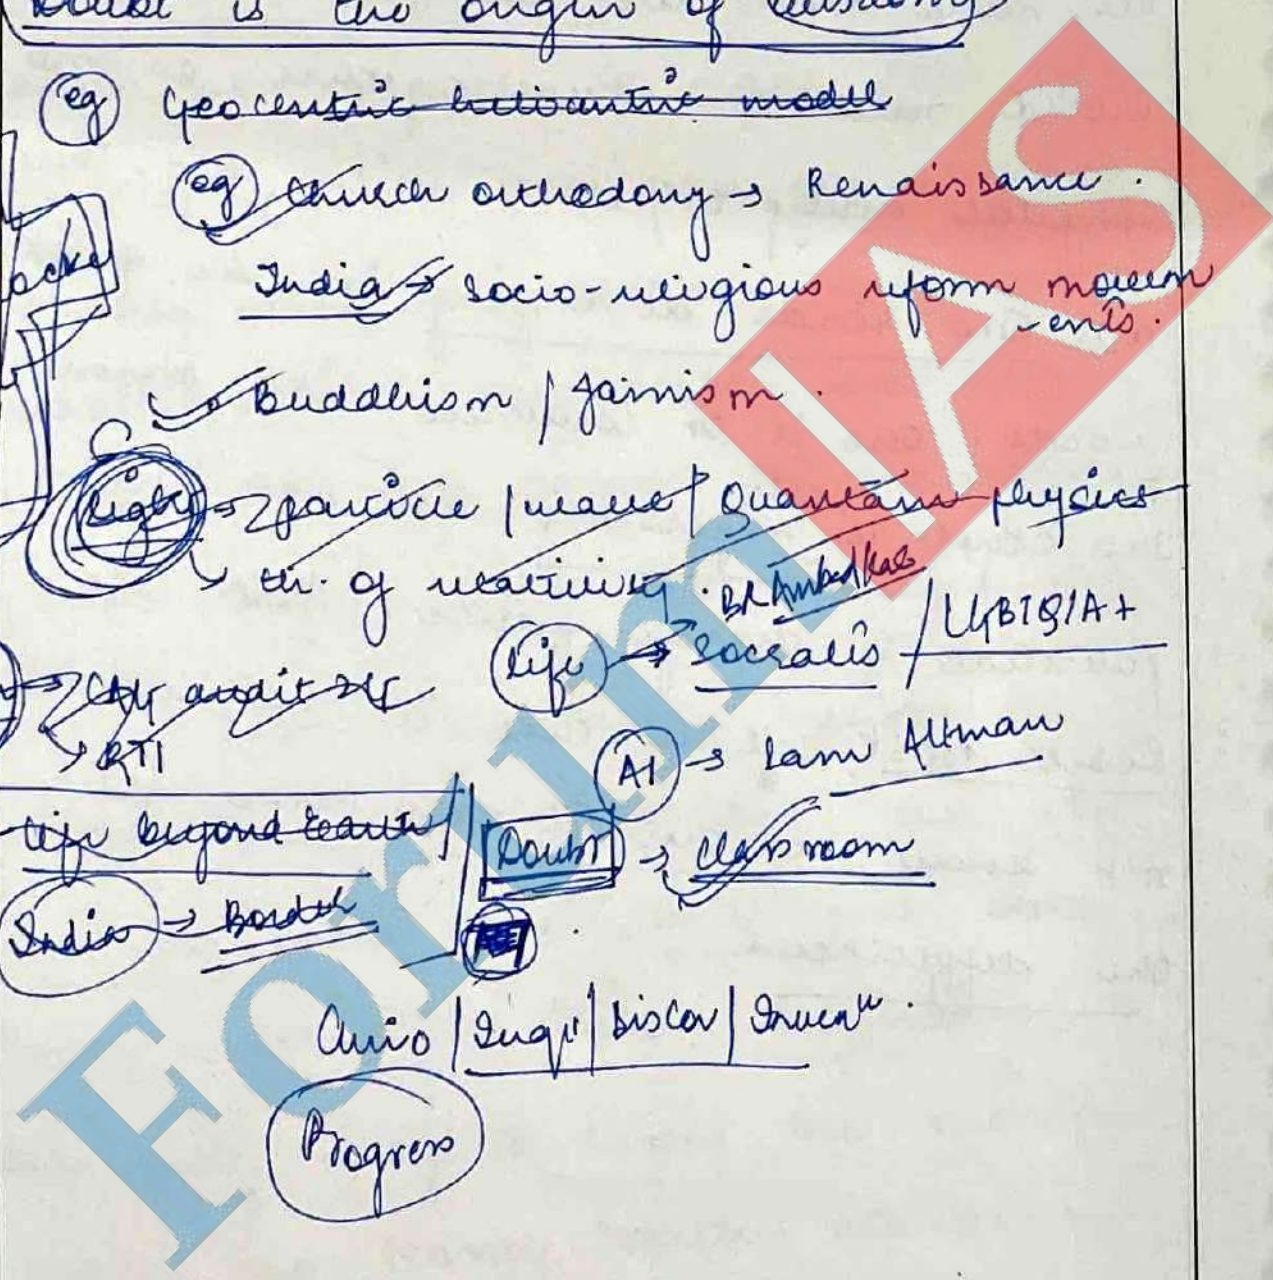 Doubt is the origin of wisdom
eg Geocentric heliocentric model
eg Church orthodoxy → Renaissance.
India → Socio-religious reform movem
-ents.
→ Buddhism / Jainism.
Light → particle / wave / Quantum physics
↳ th. of relativity.
BR Ambedkar
Life → Socratis / LGBTQIA+
→ CAG audit
↳ RTI
AI → Sam Altman
life beyond Earth
Doubt → Classroom
India → Border
Curio / Inqi / Discov / Invenn.
Progress
Forum IAS